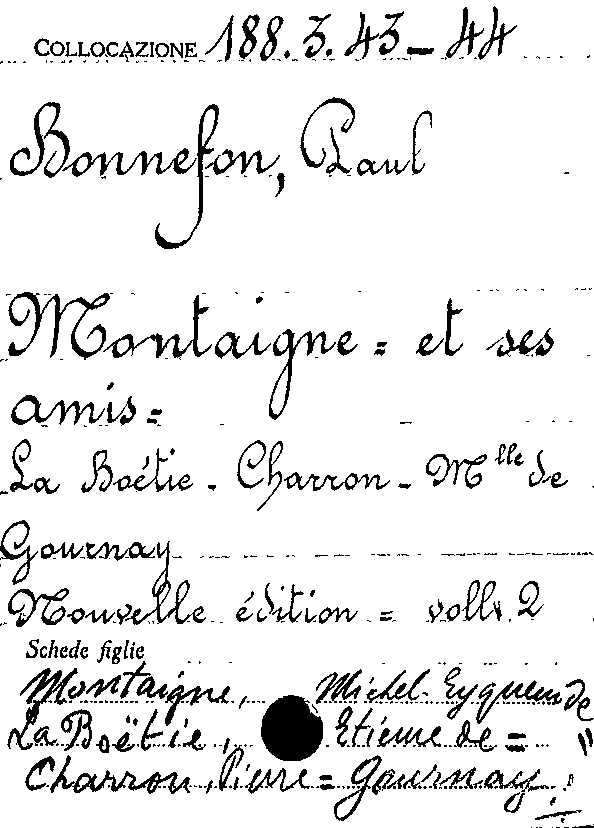 COLLOCAZIONE 188.3.43-44
Bonnefon, Paul
Montaigne = et ses
amis =
La Boétie - Charron - Mlle de
Gournay
Nouvelle édition = voll. 2
Schede figlie
Montaigne, Michel Eyquem de
La Boëtie, Etienne de = "
Charron, Pierre = Gournay